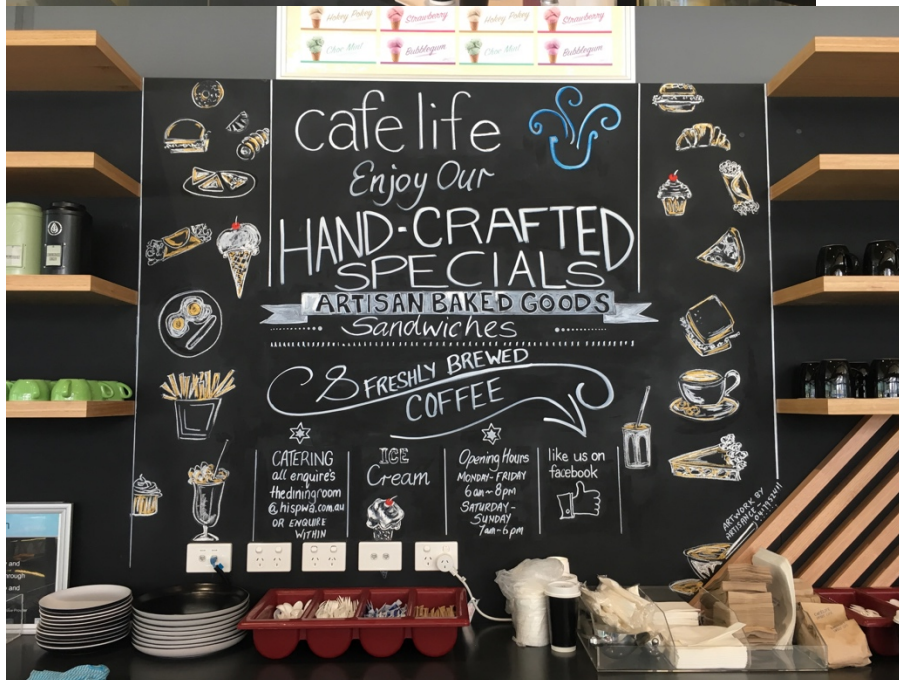 Hokey Pokey Strawberry Hokey Pokey Strawberry
Choc Mint Bubblegum Choc Mint Bubblegum
cafe life
Enjoy Our
HAND-CRAFTED
SPECIALS
ARTISAN BAKED GOODS
Sandwiches
& FRESHLY BREWED
COFFEE
CATERING
all enquire's
thediningroom
@hispwa.com.au
OR ENQUIRE
WITHIN
ICE
Cream
Opening Hours
MONDAY-FRIDAY
6am-8pm
SATURDAY-
SUNDAY
7am-6pm
like us on
facebook
ARTWORK BY